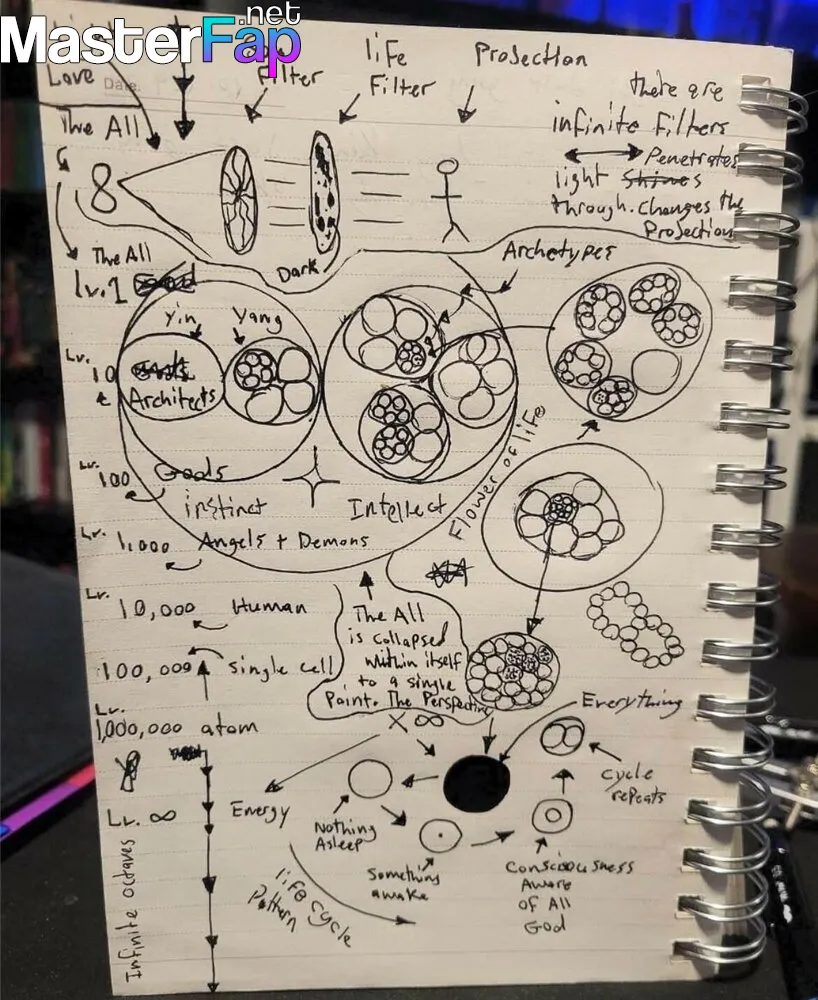 MasterFap
.net
Love
Date.
Filter
life
Filter
Projection
there are
infinite filters
Penetrates
light Shines
through. Changes the
Projection
The All
8
Dark
The All
Lv. 1
Archetypes
Yin
Yang
Lv.
10
Architects
Lv.
100
Gods
instinct
Intellect
Flower of life
Lv.
1,000
Angels + Demons
Lv.
10,000
Human
The All
is collapsed
within itself
to a single
Point. The Perspective
X ∞
100,000
Single cell
Lv.
1,000,000 atom
Everything
cycle
repeats
Lv. ∞
Energy
Nothing
Asleep
Something
awake
Consciousness
Aware
of All
God
life cycle
Pattern
Infinite octaves